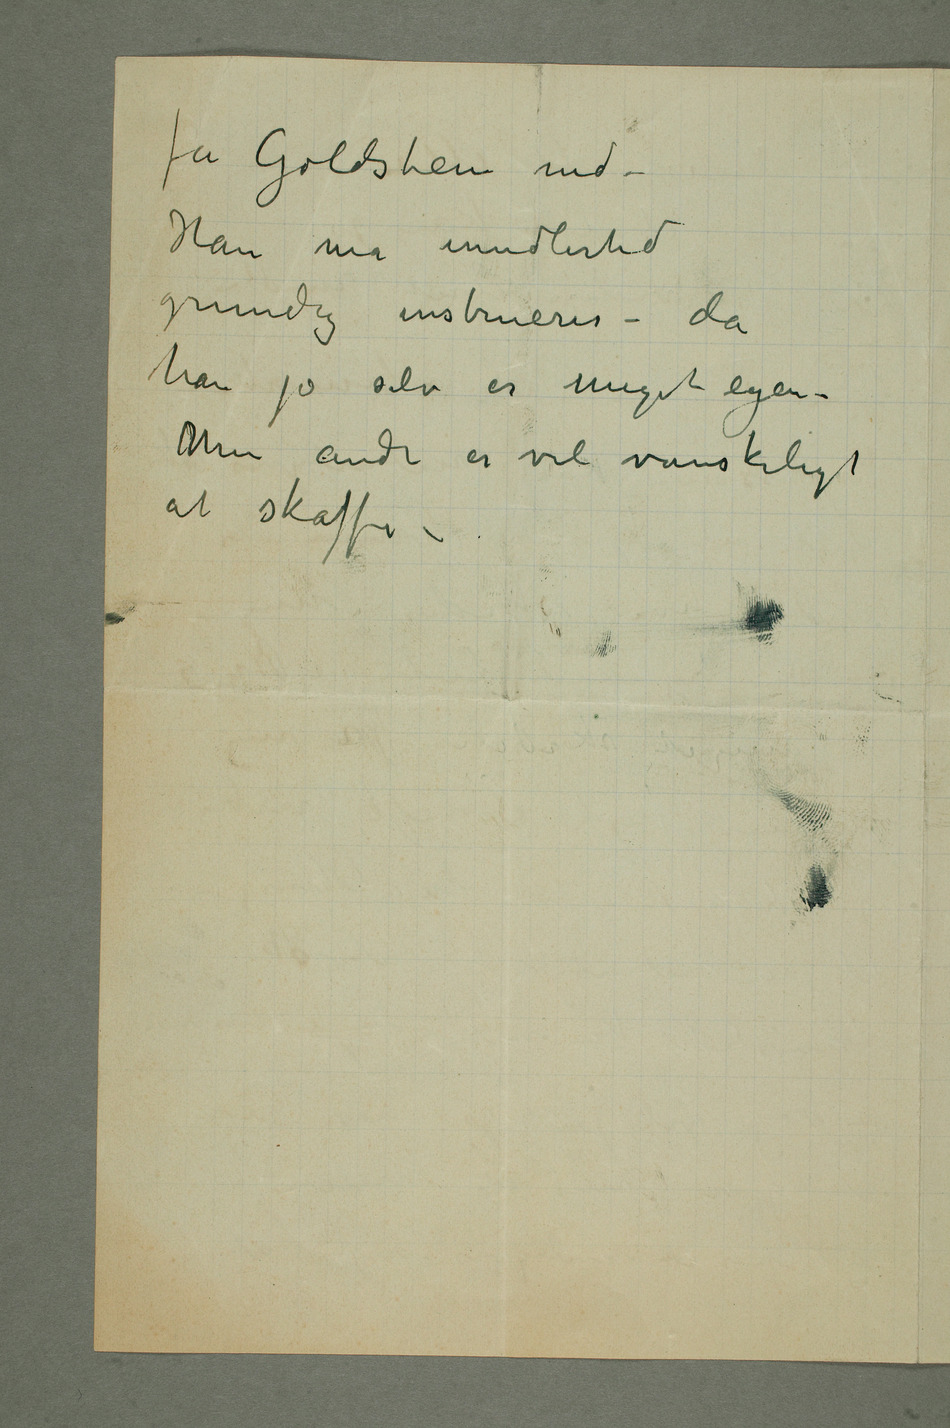 få Goldstein ned –
Han må imidlertid
grundig instrueres – da
han jo selv er meget egen –
Men andre er vel vanskeligt
at skaffe –